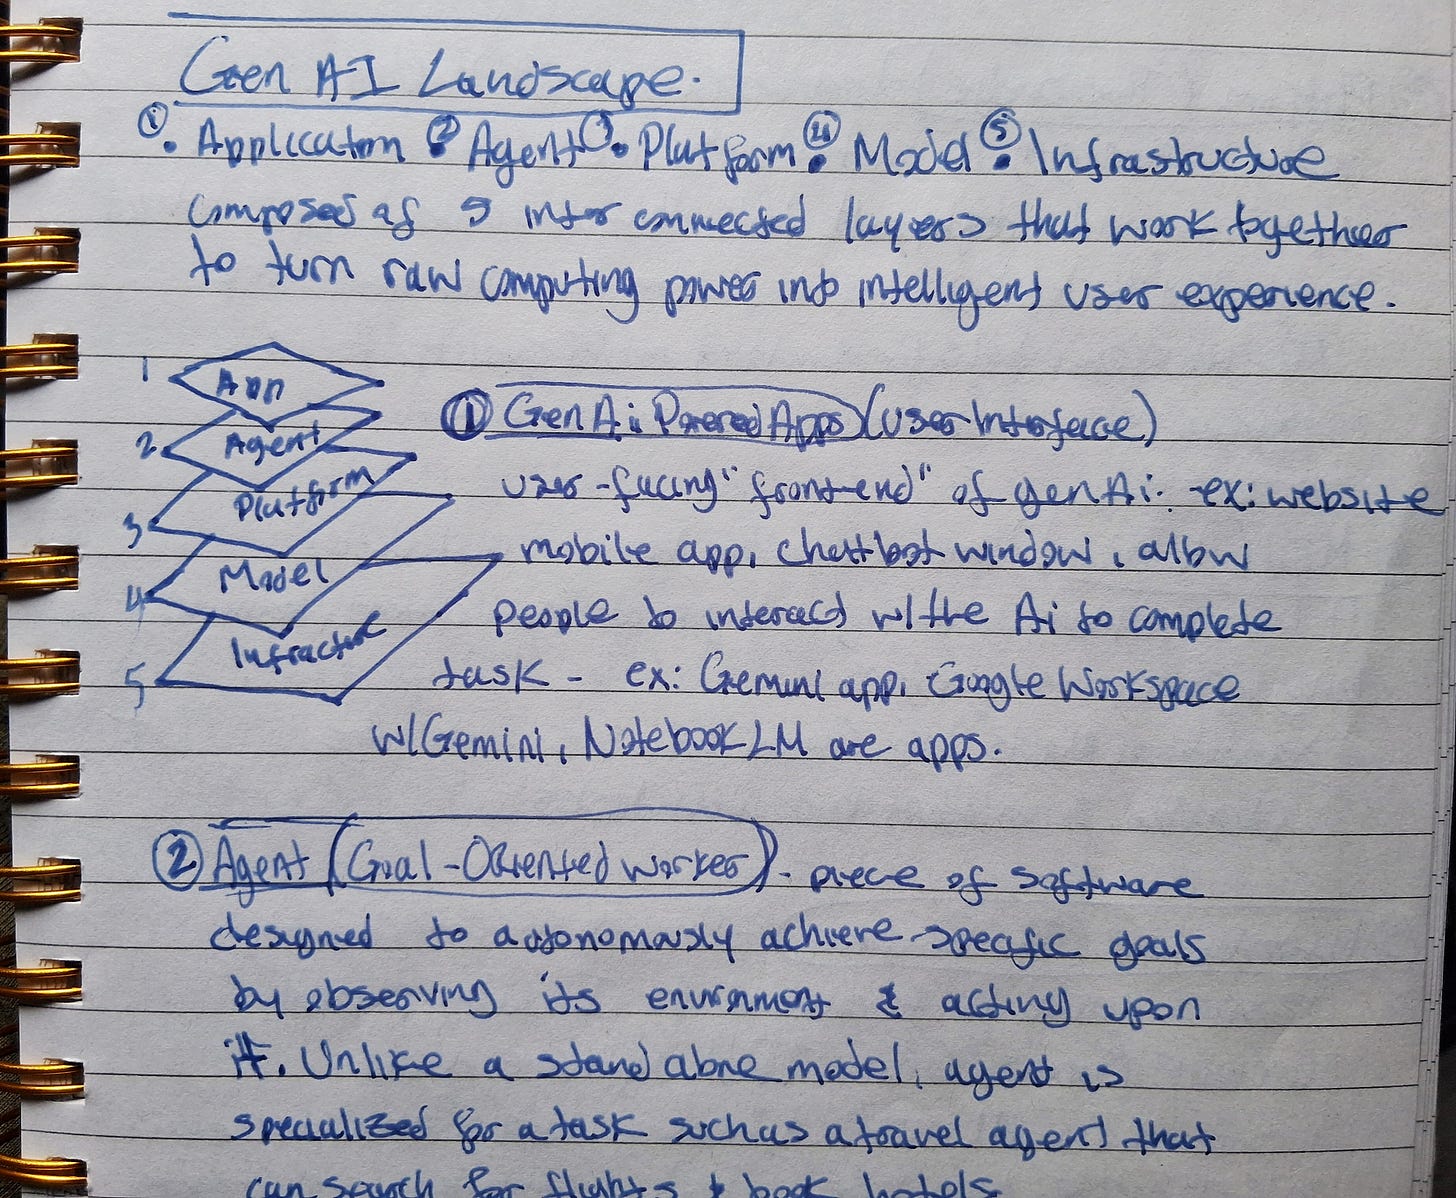 Gen AI Landscape.
① • Application ② • Agent • Platform ④ • Model ⑤ • Infrastructure
composed of 5 inter connected layers that work together
to turn raw computing power into intelligent user experience.
1 App
2 Agent
3 Platform
4 Model
5
① Gen Ai Powered Apps (User Interface)
user-facing "front-end" of gen Ai. -ex: website
mobile app, chatbot window, allow
people to interact w/the Ai to complete
task - ex: Gemini app, Google Workspace
w/Gemini, NotebookLM are apps.
② Agent (Goal-Oriented worker) - piece of software
designed to autonomously achieve specific goals
by observing its environment & acting upon
it. Unlike a stand alone model, agent is
specialized for a task such as a travel agent that
can search for flights & book hotels